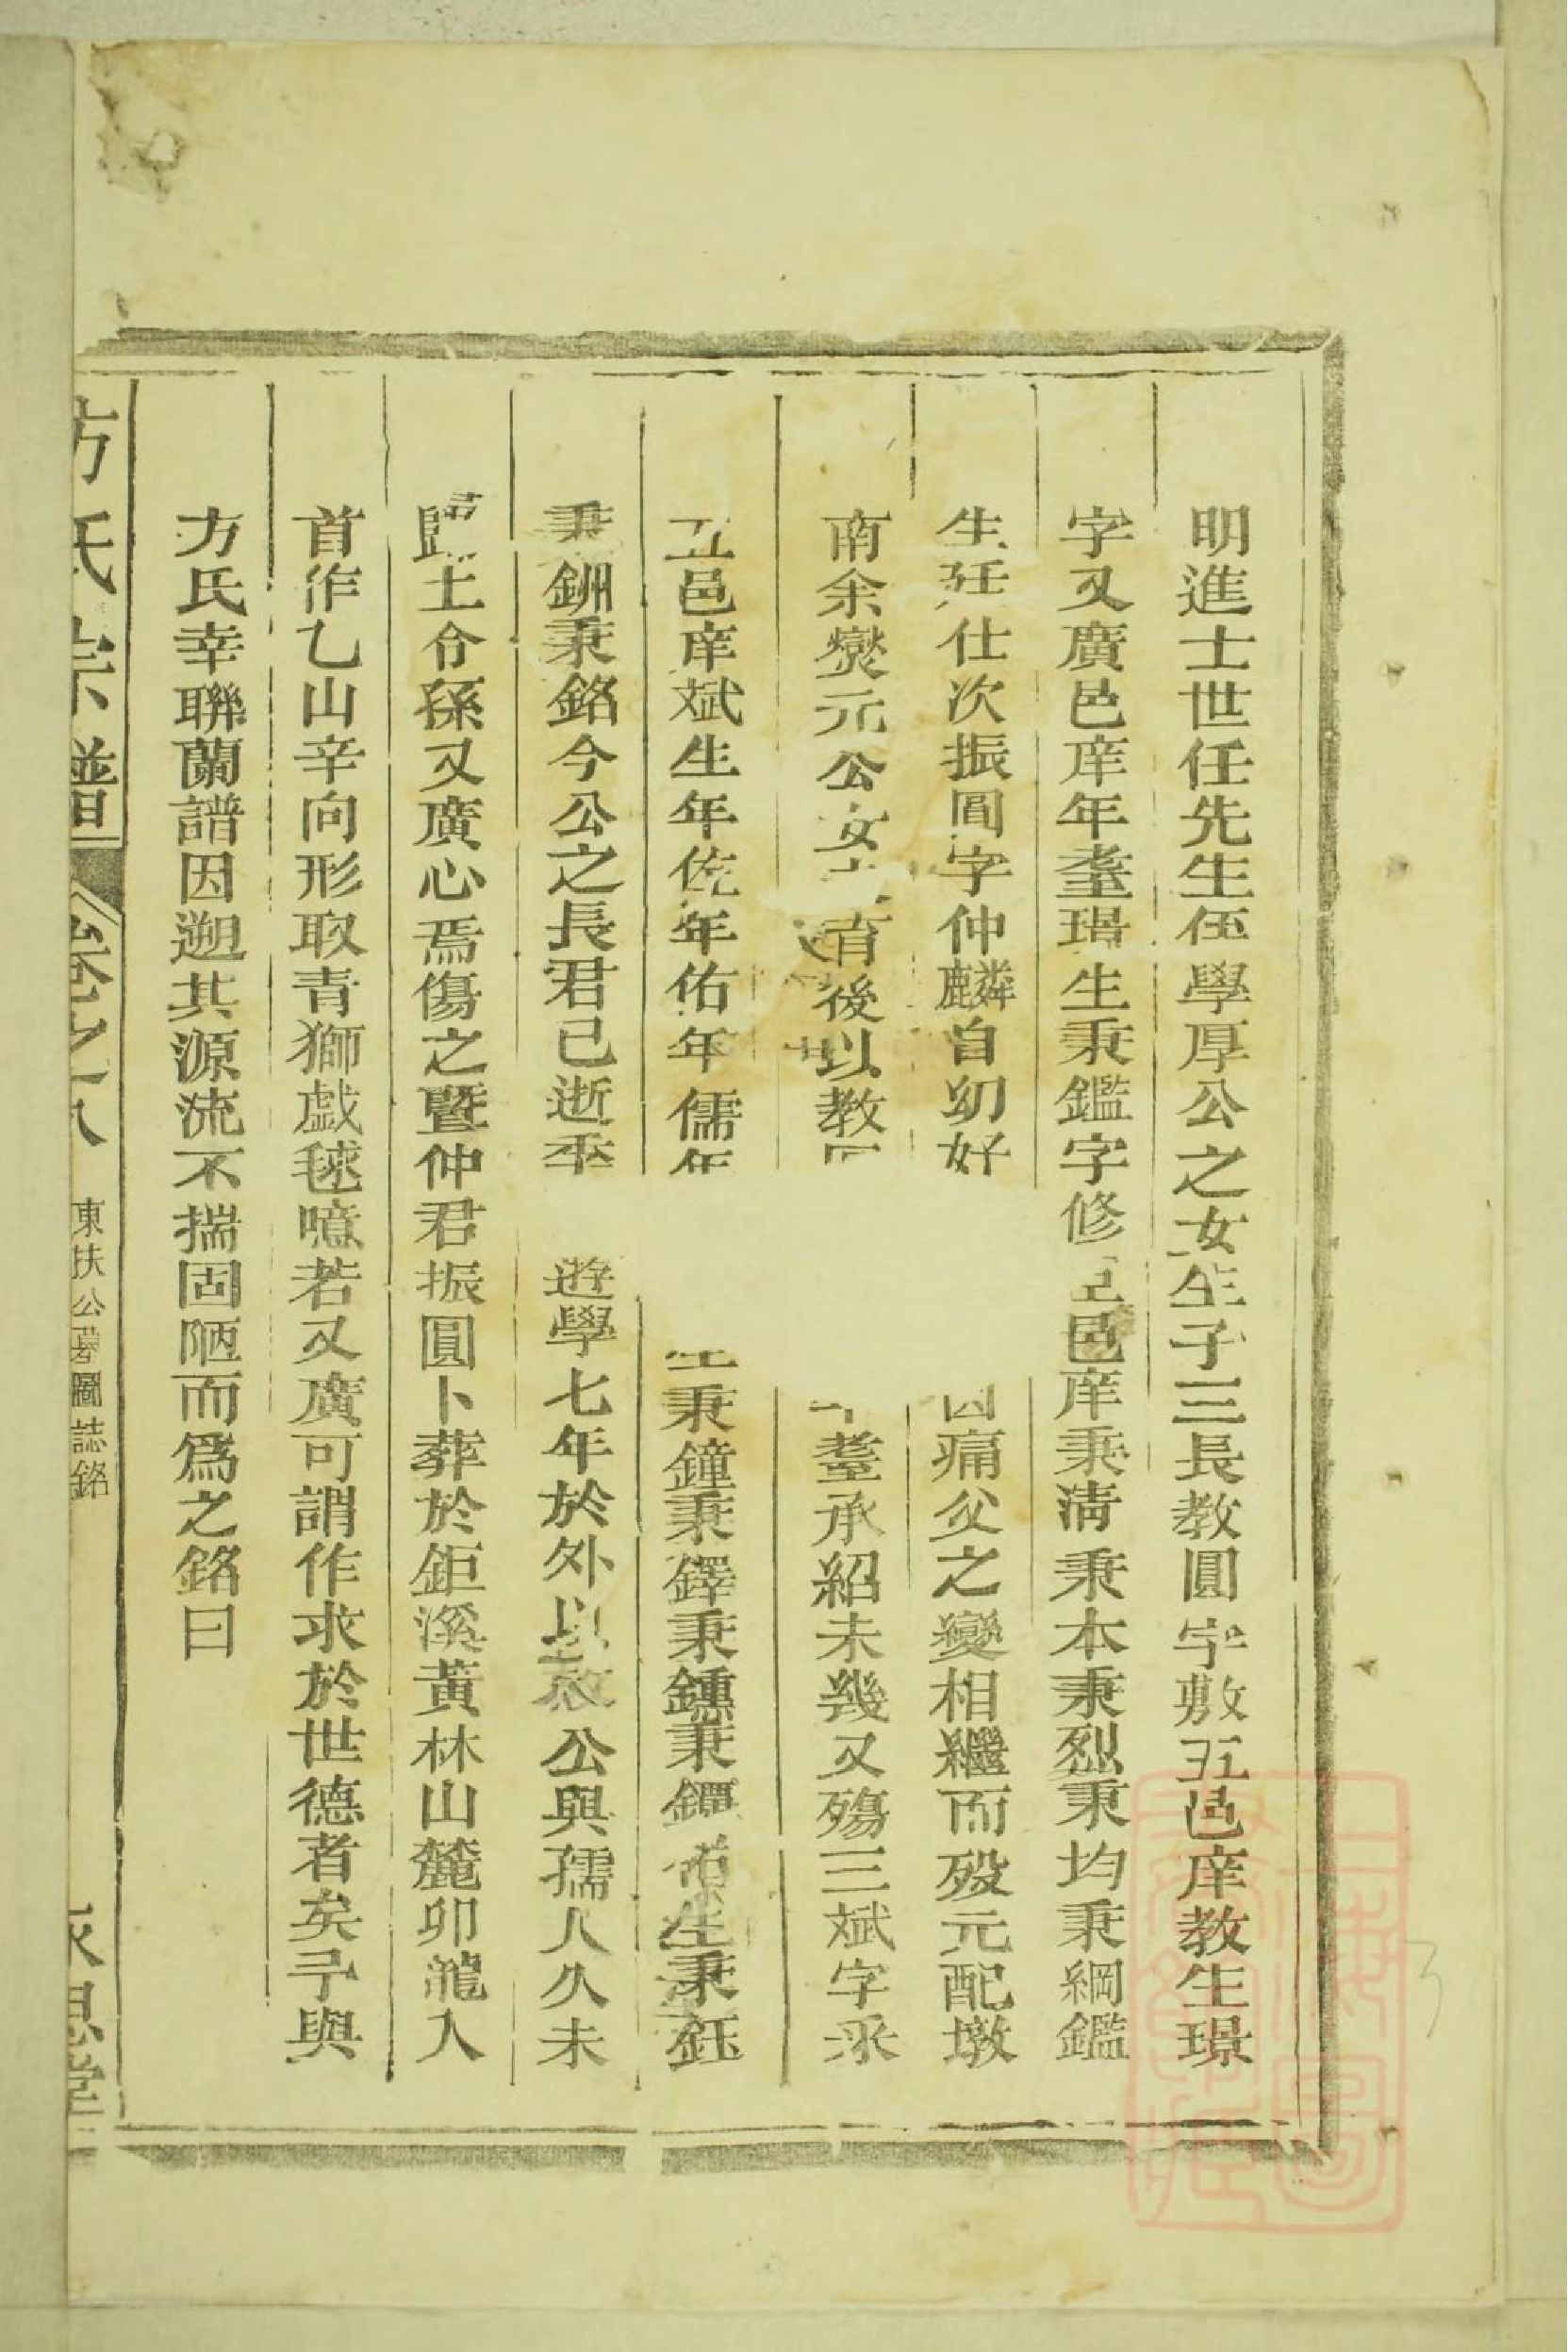 明進士世任先生侄學厚公之女生子三長教圓字敷五邑庠教生璟
字又廣邑庠年耋璟生秉鑑字修邑庠秉清秉本秉烈秉均秉綱鑑
生廷仕次振圓字仲麟自幼好痛父之變相繼而歿元配墩
南余爕元公女育後以教耋承紹未幾又殤三斌字采
五邑庠斌生年佐年佑年儒年生秉鐘秉鐸秉鍾秉鐔佑生秉鈺
秉鉶秉銘今公之長君已逝季遊學七年於外以故公與孺人久未
歸土令孫又廣心焉傷之暨仲君振圓卜葬於鉅溪黃林山麓卯龍入
首作乙山辛向形取青獅戲毬噫若又廣可謂作求於世德者矣予與
方氏幸聯蘭譜因遡其源流不揣固陋而爲之銘曰
方氏宗譜 卷之八 東扶公墓圖誌銘 永思堂